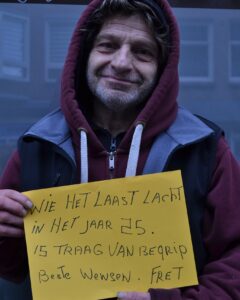 WIE HET LAAST LACHT
IN HET JAAR 25.
IS TRAAG VAN BEGRIP
Beste Wensen. FRET